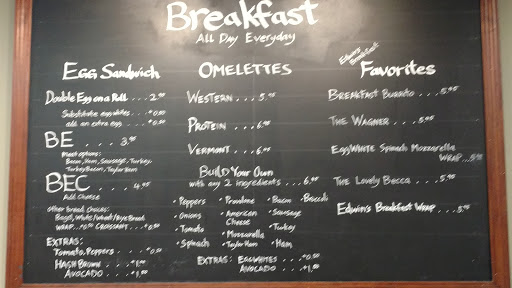 Breakfast
All Day Everyday
Egg Sandwich
Double Egg on a Roll...2.90
Substitute egg whites...+0.50
add an extra egg...+0.50
BE...3.95
Meat options:
Bacon, Ham, Sausage, Turkey,
Turkey Bacon, Taylor Ham
BEC...4.95
Add Cheese
other bread choices:
Bagel, White/Wheat/Rye Bread
WRAP...+0.50 CROISSANT...+0.50
EXTRAS:
Tomato, Peppers...+0.50
HASH BROWN...+1.00
AVOCADO...+1.50
OMELETTES
WESTERN.....5.95
PROTEIN.....6.95
VERMONT....6.95
BUILD YOUR OWN
with any 2 ingredients...6.95
• Peppers • Provolone • Bacon • Broccoli
• Onions • American Cheese • Sausage
• Tomato • Mozzarella • Turkey
• Spinach • Taylor Ham • Ham
EXTRAS: EGGWHITES...+0.50
AVOCADO...+1.50
Edwin's Breakfast
Favorites
BREAKFAST BURRITO....5.95
THE WAGNER......5.95
EGGWHITE Spinach Mozzarella
WRAP...5.95
The Lovely Becca....5.95
Edwin's Breakfast Wrap...5.95